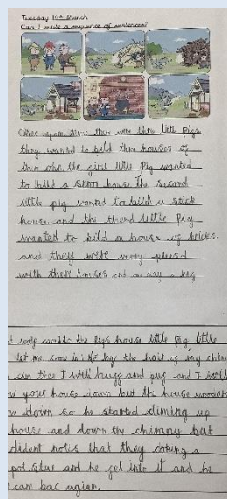 Tuesday 16th March
Can I write a sequence of sentences?
Once upon time ther wer three little Pigs
they wanted to bild ther houses of
ther own. the first little Pig wanted
to bild a straw house the second
little pig wanted to bild a stick
house and the therd little Pig
wanted to bild a house of bricks.
and they were very pleesd
with ther houses and
wolf the pigs house little pig little
let me come in by the hair of my chiny
then I will hugg and puf and I
your house down but the house
down so he started climing up
house and down the chimny but
dident notis that they
pot and he get into it and he
cam bac again.